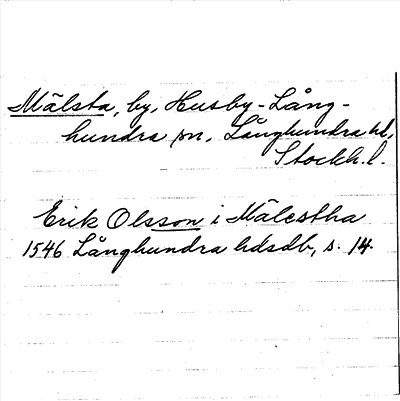 Mälsta, by, Husby-Lång-
hundra sn, Långhundra hd,
Stockh. l.
Erik Olsson i Mälestha
1546 Långhundra hdsdb, s. 14.